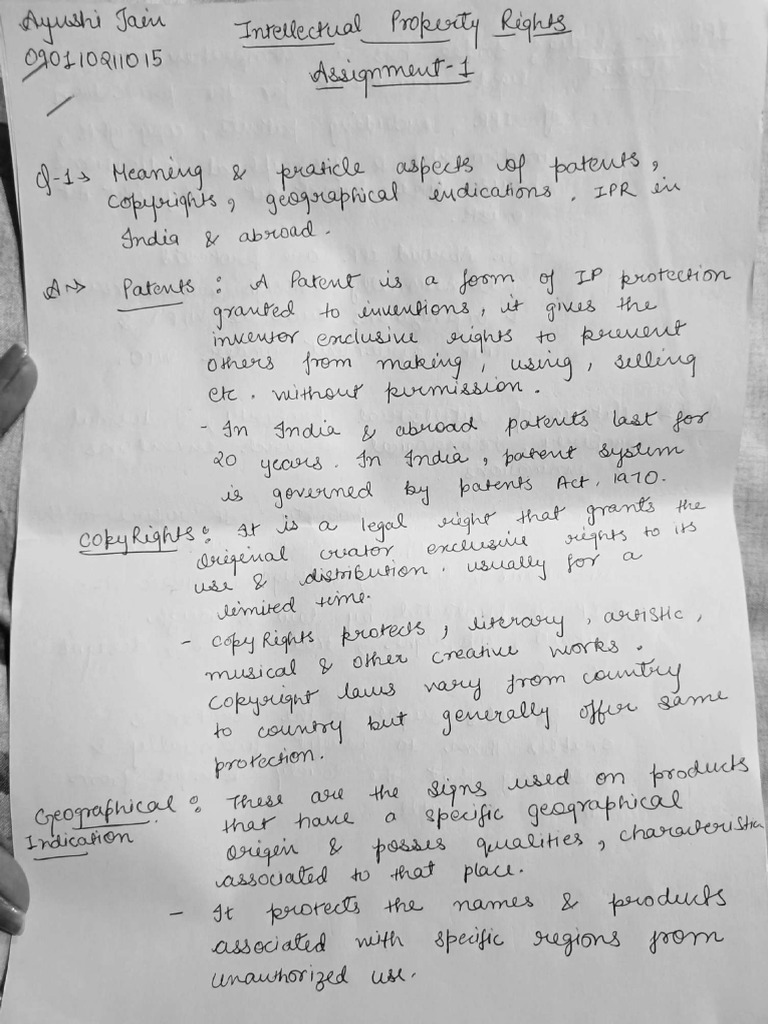 Ayushi Jain
Intellectual Property Rights
Assignment-1
Q-1→ Meaning & praticle aspects of patents,
copyrights, geographical indications. IPR in
India & abroad.
A→ Patents : A Patent is a form of IP protection
granted to inventions, it gives the
inventor exclusive rights to prevent
others from making, using, selling
etc. without permission.
- In India & abroad patents last for
20 years. In India, patent system
is governed by patents Act, 1970.
CopyRights : It is a legal right that grants the
original creator exclusive rights to its
use & distribution. usually for a
limited time.
- CopyRights protects, literary, artistic,
musical & other creative works.
Copyright laws vary from country
to country but generally offer same
protection.
Geographical : These are the signs used on products
Indication that have a specific geographical
origin & posses qualities, characteristics
associated to that place.
- It protects the names & products
associated with specific regions from
unauthorized use.